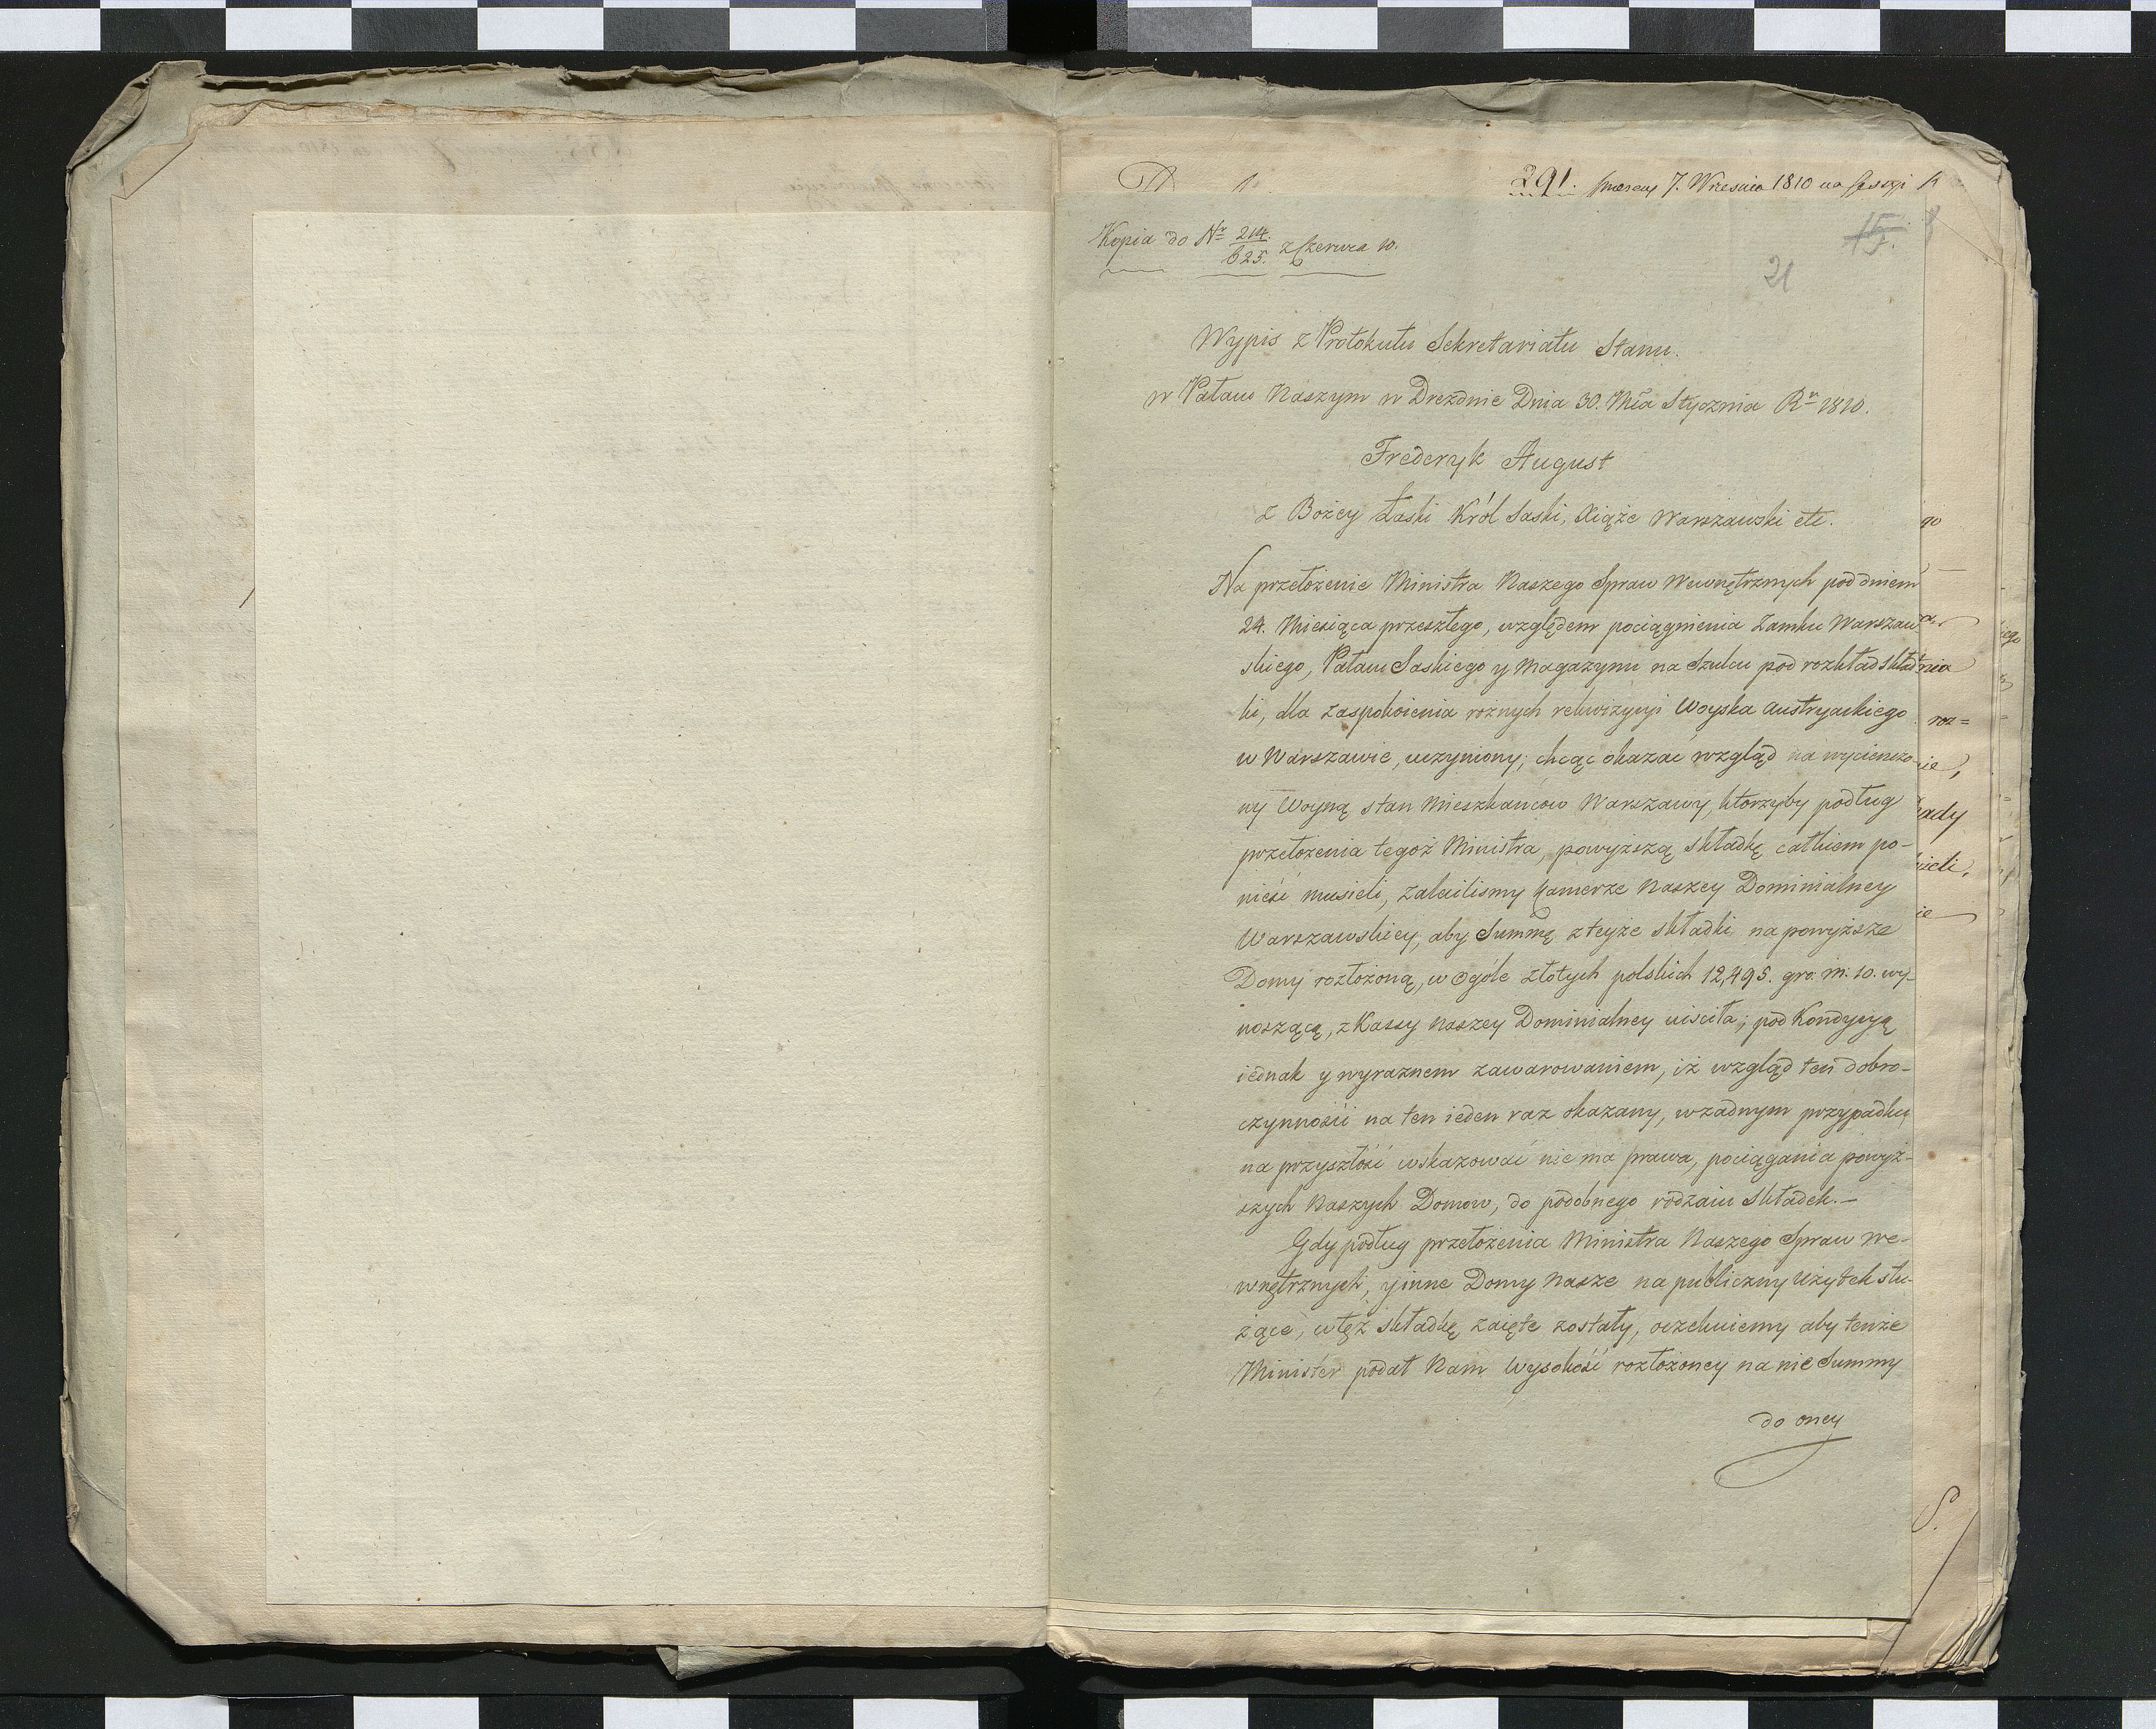 291. 7. Wrzesnia 1810 na Sessyi
Kopia do Nr 214./625. z Czerwca 10.
15.
21
Wypis z Protokułu Sekretariatu Stanu.
w Pałacu Naszym w Dreźdnie Dnia 30. Mca Stycznia Ru 1810.
Frederyk August
z Bożey Łaski Król Saski, Xiąże Warszawski etc.
Na przełożenie Ministra Naszego Spraw Wewnętrznych pod dniem
24. Miesiąca przeszłego, względem pociągnienia Zamku Warszaw-
skiego, Pałacu Saskiego y Magazynu na Szulcu pod rozkład skład-
ki, dla zaspokoienia rożnych rekwizycyi Woyska Austryackiego
w Warszawie, uczyniony; chcąc okazac wzgląd na wycienczo-
ny Woyną stan Mieszkancow Warszawy, ktorzyby podług
przełożenia tegoż Ministra, powyższą składkę całkiem po-
nieść musieli, zaleciliśmy Kamerze Naszey Dominialney
Warszawskiey, aby Summę z teyże składki na powyższe
Domy rozłożoną, w ogóle złotych polskich 12,495. gro. m. 10. wy-
noszącą, z Kassy naszey Dominialney uisciła; pod Kondycyą
iednak y wyraznem zawarowaniem, iż wzgląd ten dobro-
czynności na ten ieden raz okazany, w żadnym przypadku
na przyszłość wskazować nie ma prawa, pociągania powyż-
szych Naszych Domow, do podobnego rodzaiu Składek.—
Gdy podług przełożenia Ministra Naszego Spraw We-
wnętrznych, y inne Domy Nasze na publiczny użytek słu-
żące, w tęż składkę zaięte zostały, oczekuiemy aby tenże
Minister podał Nam Wysokość rozłożoney na nie Summy
do oney
go
nia
roz=
ie,
ady
ieli,
ie